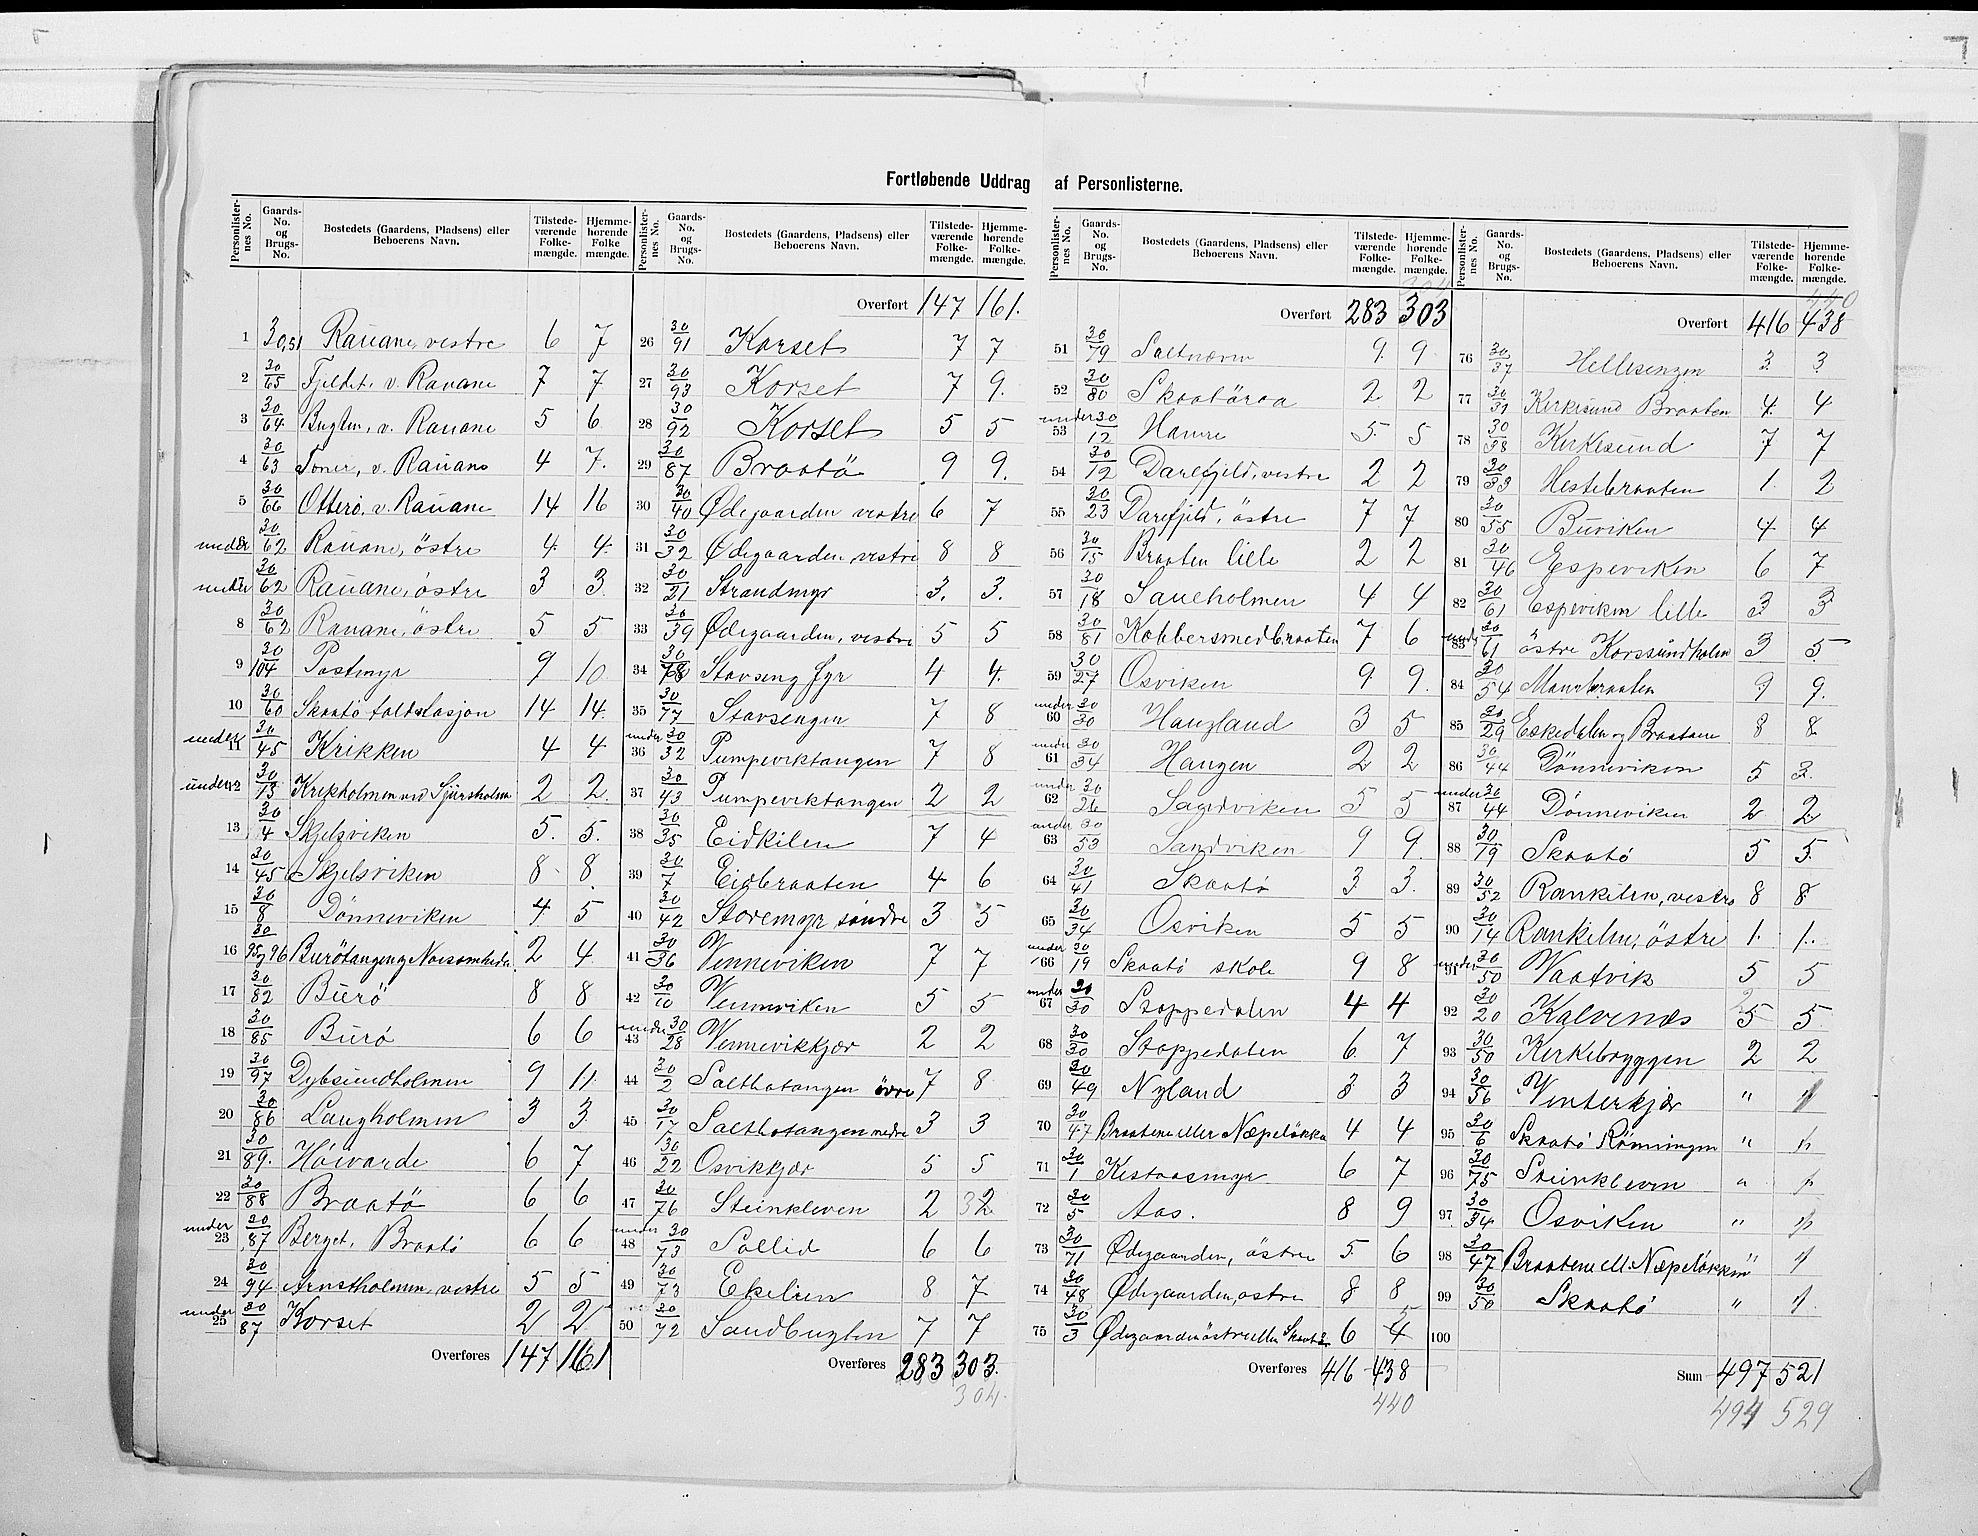 Fortløbende Uddrag af Personlisterne.
Personlister-nes No. Gaards-No. og Brugs-No. Bostedets (Gaardens, Pladsens) eller Beboerens Navn. Tilstede-værende Folke-mængde. Hjemme-hørende Folke mængde.
1 30,51 Rauane, vestre 6 7
2 30/65 Fjeldet, v. Rauane 7 7
3 30/64 Bugten, v. Rauane 5 6
4 30/63 Toner, v. Rauane 4 7.
5 30/66 Otterö, v. Rauane 14 16
under 6 30/62 Rauane, östre 4. 4.
under 7 30/62 Rauane, östre 3 3.
8 30/62 Rauane, östre 5 5
9 30/104 Postmyr 9 10
10 30/60 Skaatö toldstasjon 14 14.
under 11 30/45 Krikken 4 4
under 12 30/13 Krikholmen ved Sjursholm 2 2.
13 30/4 Skjelsviken 5. 5.
14 30/45 Skjelsviken 8 8
15 30/8 Dönneviken 4 5
16 30/95 og 96 Burötangen og Noisomheden 2 4
17 30/82 Burö 8 8
18 30/85 Burö 6 6
19 30/97 Dybsundholmen 9 11
20 30/86 Langholmen 3 3
21 30/89. Höivarde 6 7
22 30/88 Braatö 6 6
under 23 30/87 Berget, Braatö 6 6
24 30/94 Arnstholmen, vestre 5 5
under 25 30/87 Korset 2 2
Overføres 147 161
Personlister-nes No. Gaards-No. og Brugs-No. Bostedets (Gaardens, Pladsens) eller Beboerens Navn. Tilstede-værende Folke-mængde. Hjemme-hørende Folke-mængde.
Overført 147 161.
26 30/91 Korset 7 7
27 30/93 Korset 7 9.
28 30/92 Korset 5 5
29 30/87 Braatö 9 9.
30 30/40 Ødegaarden vestre 6 7
31 30/32 Ødegaarden, vestre 8 8
32 30/21 Strandmyr 3. 3.
33 30/39 Ødegaarden, vestre 5 5
34 30/78 Stavseng fyr 4 4.
35 30/77 Stavsengen 7 8
under 36 30/32 Pumpeviktangen 7 8
37 30/43 Pumpeviktangen 2 2
38 30/35 Eidkilen 7 4
39 30/7 Eidbraaten 4 6
40 30/42 Storemyr söndre 3 5
41 30/36 Venneviken 7 7
42 30/10 Venneviken 5 5
under 43 30/28 Vennevikkjær 2 2
44 30/2 Saltbotangen övre 7 8
45 30/17 Saltbotangen nedre 3 3
46 30/22 Osvikkjær 5 5
47 30/76 Steinkleven 2 32
under 48 30/73 Sollid 6 6
49 30/73 Ekelien 8 7
50 30/72 Sandbugten 7 7
Overføres 283 303.
304.
Personlister-nes No. Gaards-No. og Brugs-No. Bostedets (Gaardens, Pladsens) eller Beboerens Navn. Tilstede-værende Folke-mængde. Hjemme-hørende Folke-mængde.
304
Overført 283 303
51 30/79 Saltnæven 9. 9.
52 30/80 Skaatöraa 2 2
under 53 30/12 Havre 5. 5
54 30/12 Darefjeld, vestre 2 2
55 30/23 Darefjeld, östre 7 7
56 30/15 Braaten lille 2 2
57 30/18 Saueholmen 4 4
58 30/81 Kobbersmedbraaten 7 6
59 30/27 Osviken 9 9.
under 60 30/30 Haugland 3 5
under 61 30/34 Haugen 2 2
under 62 30/26 Sandviken 5 5
under 63 30/53 Sandviken 9 9.
64 30/41 Skaatö 3. 3.
65 30/34 Osviken 5 5
under 66 30/19 Skaatö skole 9 8
under 67 30/30 Stoppedalen 4 4
68 30/30 Stoppedalen 6 7
69 30/49 Nyland 3 3
70 30/47 Braatene eller Næpeløkka 4 4
71 30/1 Kistaasmyr 6 7
72 30/5 Aas. 8 9
73 30/71 Ødegaarden, östre 5. 6
74 30/48 Ødegaarden, östre 8 8
75 30/3 Ødegaarden östre eller Skaatö 6 4 5
Overføres 416 438
440
Personlister-nes No. Gaards-No. og Brugs-No. Bostedets (Gaardens, Pladsens) eller Beboerens Navn. Tilstede-værende Folke-mængde. Hjemme-hørende Folke-mængde.
440
Overført 416 438
76 30/37 Hellesengen 3. 3
77 30/31 Kirkesund Braaten 4. 4
78 30/38 Kirkesund 7 7
79 30/33 Hestebraaten 1. 2
80 30/55 Buviken 4 4
81 30/46 Espeviken 6 7
82 30/61 Espeviken lille 3 3
under 83 30/61 östre Korssundholm 3 5.
84 30/54 Maurbraaten 9 9.
85 30/29 Eskedalen og Braatane 8 8
86 30/44 Dönneviken 5 3.
under 87 30/44 Dönneviken 2 2
88 30/19 Skaatö 5 5.
89 30/52 Rankilen, vestre 8 8
90 30/14 Rankilen, östre 1. 1.
under 91 30/50 Vaatvik 5 5
92 30/20 Kalvenæs 5 2 5.
93 30/50 Kirkebryggen 2 2
94 30/56 Vinterkjær " "
95 30/6 Skaatö Rönningen " "
96 30/75 Steinkleven " "
97 30/34 Osviken " "
98 30/47 Braatene ell. Næpeløkken " "
99 30/50 Skaatö " "
100
Sum 497 521
494 529